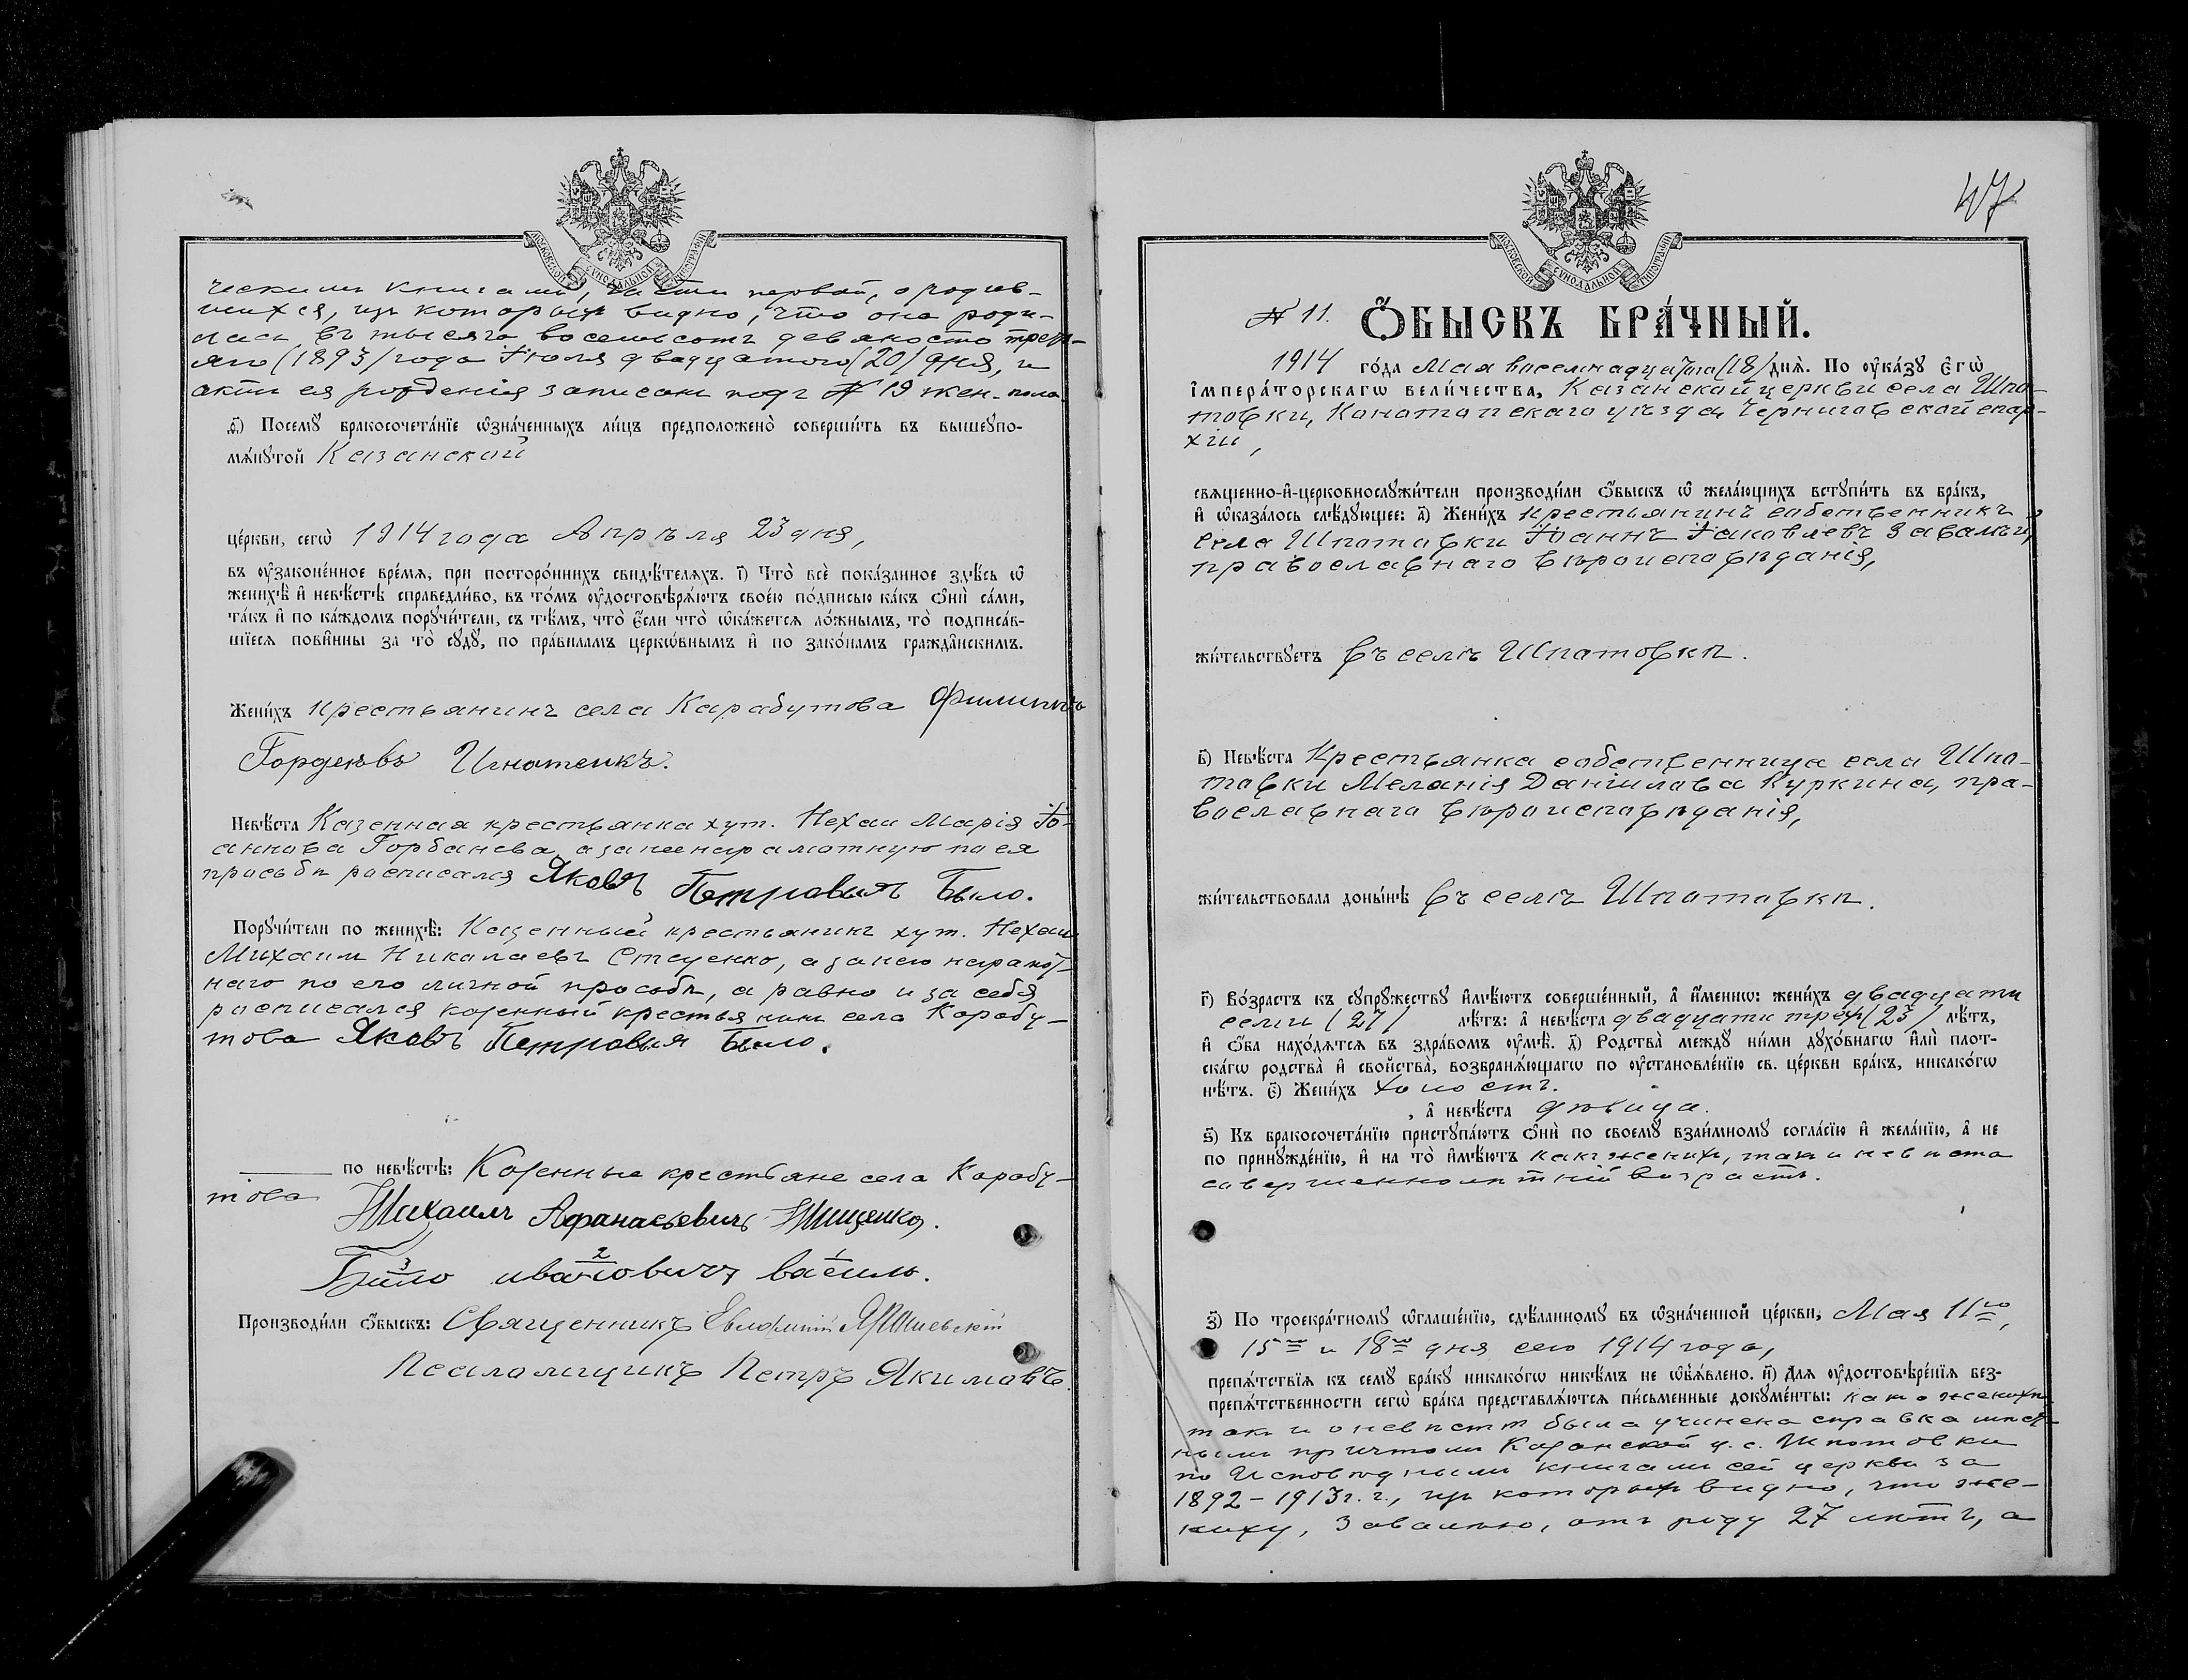 МОСКОВСКОЙ СѴНОДАЛЬНОЙ ТИПОГРАФІИ
ческими книгами, части первой, о родив-
шихся, изъ которыхъ видно, что она роди-
лась въ тысяча восемьсотъ девяносто треть-
яго (1893) года Іюля двадцатого (20) дня, и
актъ ея рожденія записанъ подъ № 19 жен. пола
ѳ҃) Посемꙋ̀ бракосочета́нїе ѡ҆зна́ченныхъ ли́цъ предположено̀ соверши́ть въ вышеꙋпо-
мѧ́нꙋтой Казанской
це́ркви, сегѡ̀ 1914 года Апрѣля 23 дня,
въ ᲂу҆законе́нное вре́мѧ, при посторо́ннихъ свидѣ́телѧхъ. і҃) Что̀ всѐ пока́занное здѣ́сь ѡ҆
женихѣ̀ и҆ невѣ́стѣ справедли́во, въ то́мъ ᲂу҆достовѣрѧ́ютъ свое́ю по́дписью ка́къ ѻ҆нѝ са́ми,
та́къ и҆ по ка́ждомъ порꙋчи́тели, съ тѣ́мъ, что̀ є҆́сли что̀ ѡ҆ка́жетсѧ ло́жнымъ, то̀ подписа́в-
шїесѧ пови́нны за то̀ сꙋдꙋ̀, по пра́виламъ церко́внымъ и҆ по зако́намъ гражда́нскимъ.
Жени́хъ крестьянинъ села Карабутова Филиппъ
Гордѣевъ Игнатенкъ.
Невѣ́ста Казенная крестьянка хут. Нехаи Марія Іо-
аннова Горбанева, а за нее неграмотную по ея
просьбѣ росписался Яковъ Петровичъ Було.
Порꙋчи́тели по женихѣ̀: Казенный крестьянинъ хут. Нехаи
Михаилъ Николаевъ Стеценко, а за него неграмот-
наго по его личной просьбѣ, а равно и за себя
росписался казенный крестьянинъ села Карабу-
това Яковъ Петровичъ Було.
по невѣ́стѣ: Казенные крестьяне села Карабу-
това
Михаилъ Афанасьевичъ Мищенко.
3 2 1
Було ивановичъ василь.
Производи́ли ѻ҆́быскъ: Священникъ Евлампий
Псаломщикъ Петръ Якимовъ.
47
МОСКОВСКОЙ СѴНОДАЛЬНОЙ ТИПОГРАФІИ
№ 11. Ѻ҆́БЫСКЪ БРА́ЧНЫЙ.
1914 го́да Мая восемнадцатаго (18) днѧ̀. По ᲂу҆ка́зꙋ Є҆гѡ̀
І҆мпера́торскагѡ вели́чества, Казанской церкви села Шпо-
товки, Конотопскаго уѣзда, Черниговской епар-
хіи,
свѧще́нно-и҆-церковнослꙋжи́тели производи́ли ѻ҆́быскъ ѡ҆ жела́ющихъ встꙋпи́ть въ бра́къ,
и҆ ѡ҆каза́лось слѣ́дꙋющее: а҃) Жени́хъ крестьянинъ собственникъ
села Шпотовки Іоаннъ Іаковлевъ Завалий,
православнаго вѣроисповѣданія,
жи́тельствꙋетъ въ селѣ Шпотовкѣ.
в҃) Невѣ́ста Крестьянка собственница села Шпо-
товки Меланія Даніилова Куркина, пра-
вославнаго вѣроисповѣданія,
жи́тельствовала доны́нѣ въ селѣ Шпотовкѣ.
г҃) Во́зрастъ къ сꙋпрꙋ́жествꙋ и҆мѣ́ютъ соверше́нный, а҆ и҆́меннѡ: жени́хъ двадцати
семи (27) лѣ́тъ: а҆ невѣ́ста двадцати трехъ (23) лѣ́тъ,
и҆ ѻ҆́ба нахо́дѧтсѧ въ здра́вомъ ᲂу҆мѣ̀. д҃) Родства̀ междꙋ̀ ни́ми дꙋхо́внагѡ и҆лѝ плот-
ска́гѡ родства̀ и҆ сво́йства, возбранѧ́ющагѡ по ᲂу҆становле́нїю св. це́ркви бра́къ, никако́гѡ
нѣ́тъ. є҃) Жени́хъ холостъ.
, а҆ невѣ́ста дѣвица.
ѕ҃) Къ бракосочета́нїю пристꙋпа́ютъ ѻ҆нѝ по своемꙋ̀ взаи́мномꙋ согла́сїю и҆ жела́нїю, а҆ не
по принꙋжде́нїю, и҆ на то̀ и҆мѣ́ютъ какъ женихъ, такъ и невѣста
совершеннолѣтній возрастъ.
з҃) По троекра́тномꙋ ѡ҆глаше́нїю, сдѣ́ланномꙋ въ ѡ҆зна́ченной це́ркви, Мая 11го,
15го и 18го дня сего 1914 года,
препѧ́тствїѧ къ семꙋ̀ бра́кꙋ никако́гѡ никѣ́мъ не ѡ҆б̾ѧ́влено. и҃) Длѧ ᲂу҆достовѣре́нїѧ без-
препѧ́тственности сегѡ̀ бра́ка представлѧ́ютсѧ пи́сьменные докꙋме́нты: какъ о женихѣ
такъ и о невѣстѣ была учинена справка мѣст-
нымъ причтомъ Казанской ц. с. Шпотовки
по Исповѣднымъ книгамъ сей церкви за
1892-1913 г.г., изъ которыхъ видно, что же-
ниху, Завалію, отъ роду 27 лѣтъ, а